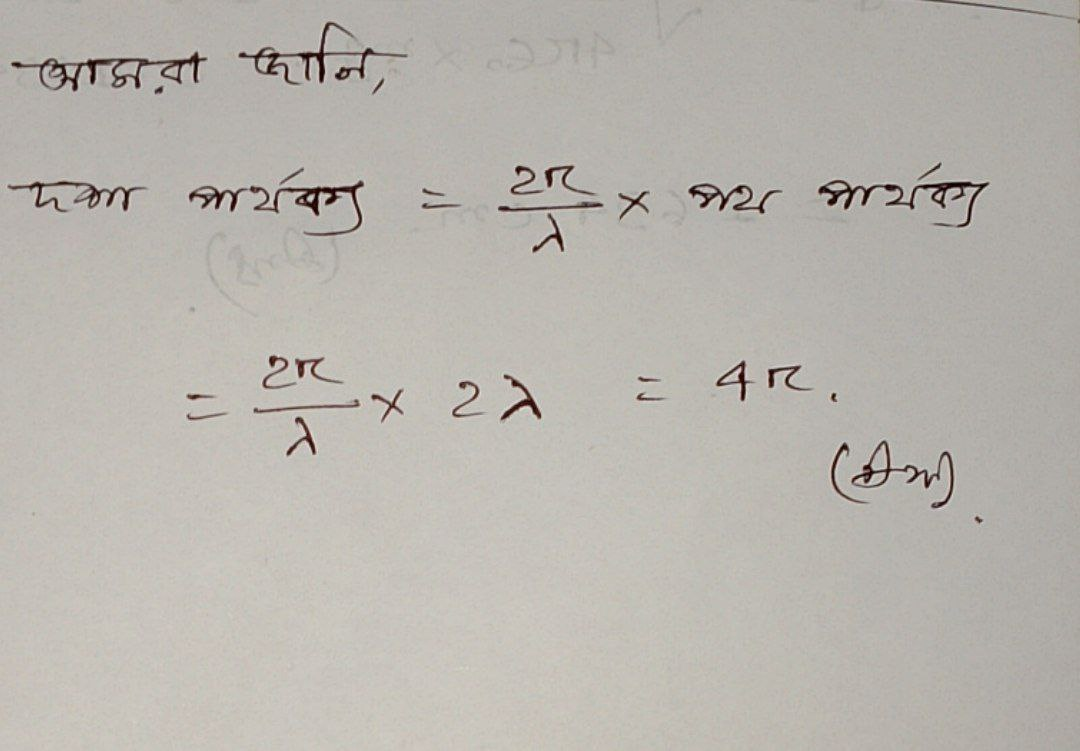 আমরা জানি,
দশা পার্থক্য = 2π/λ × পথ পার্থক্য
= 2π/λ × 2λ = 4π.
(Ans).